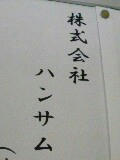 株式会社
ハンサム
（